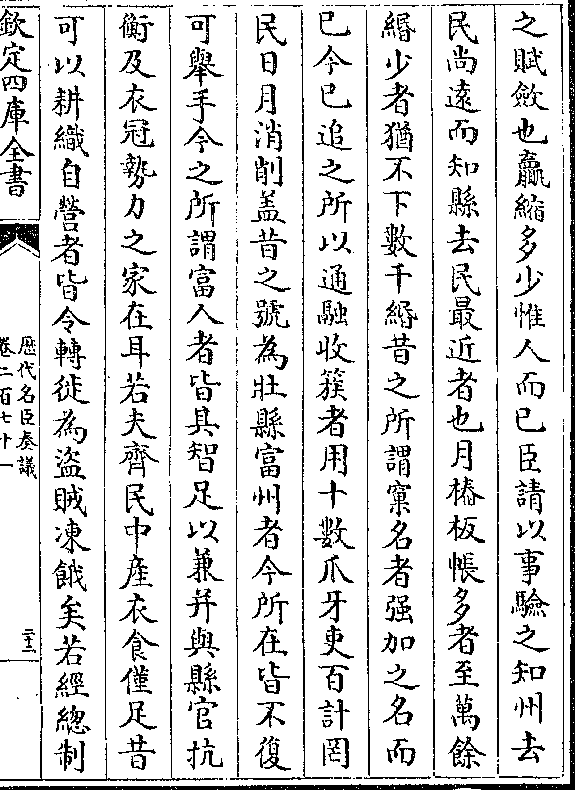 之賦斂也贏縮多少惟人而已臣請以事驗之知州去
民尚遠而知縣去民最近者也月椿板帳多者至萬餘
緡少者猶不下數千緡昔之所謂窠名者强加之名而
已今已追之所以通融收簇者用十數爪牙吏百計罔
民日月消削盖昔之號為壯縣富州者今所在皆不復
可舉手今之所謂富人者皆具智足以兼并與縣官抗
衡及衣冠勢力之家在耳若夫齊民中產衣食僅足昔
可以耕織自營者皆令轉徙為盜賊凍餓矣若經總制
欽定四庫全書
歷代名臣奏議
卷二百七十一
二十三